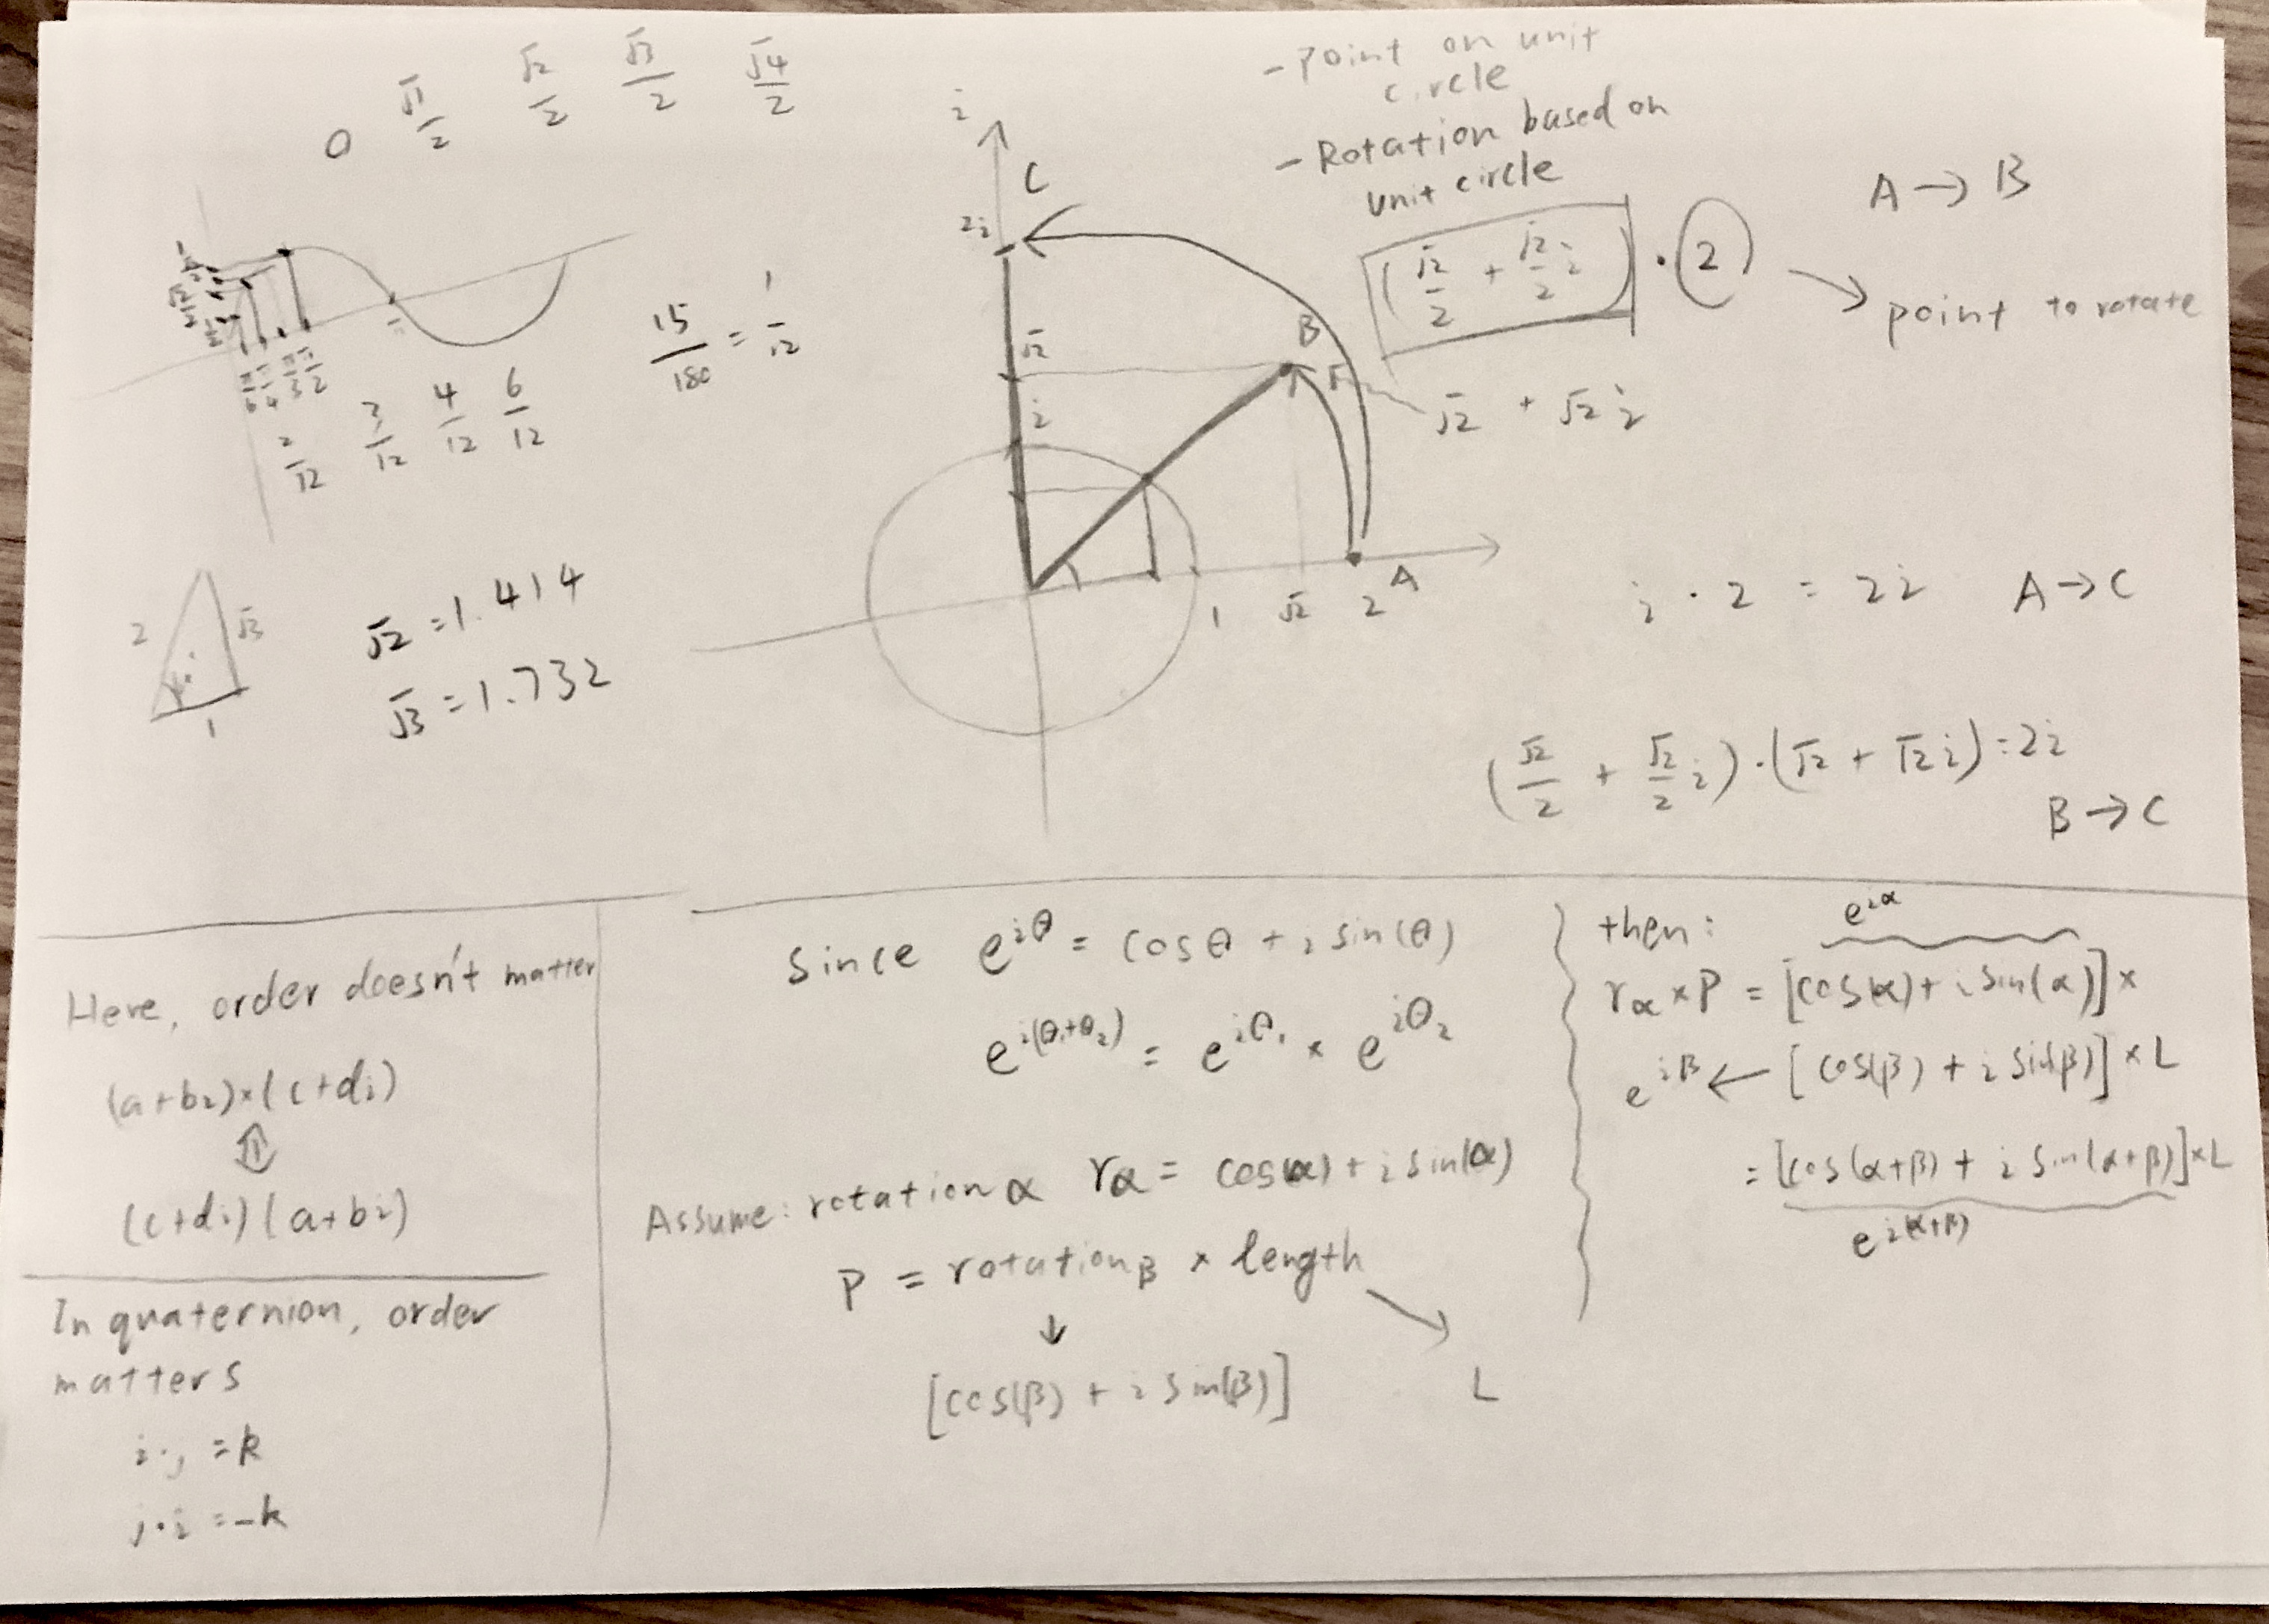 0 √1/2 √2/2 √3/2 √4/2
2/12 3/12 4/12 6/12
15/180 = 1/12
2 √3
1
√2 = 1.414
√3 = 1.732
i
C
2i
√2
i
B
1 √2 2 A
- Point on unit
circle
- Rotation based on
unit circle
(√2/2 + √2/2 i) · 2
A → B
point to rotate
√2 + √2 i
i · 2 = 2i A → C
(√2/2 + √2/2 i) · (√2 + √2 i) = 2i
B → C
Here, order doesn't matter
(a+bi)×(c+di)
⇕
(c+di)(a+bi)
In quaternion, order
matters
i·j = k
j·i = -k
Since e^{iθ} = cosθ + i sin(θ)
e^{i(θ₁+θ₂)} = e^{iθ₁} × e^{iθ₂}
Assume: rotation α r_α = cos(α) + i sin(α)
P = rotation_β × length
↓ ↘
[cos(β) + i sin(β)] L
then: e^{iα}
r_α × P = [cos(α) + i sin(α)] ×
e^{iβ} ← [cos(β) + i sin(β)] × L
= [cos(α+β) + i sin(α+β)] × L
e^{i(α+β)}